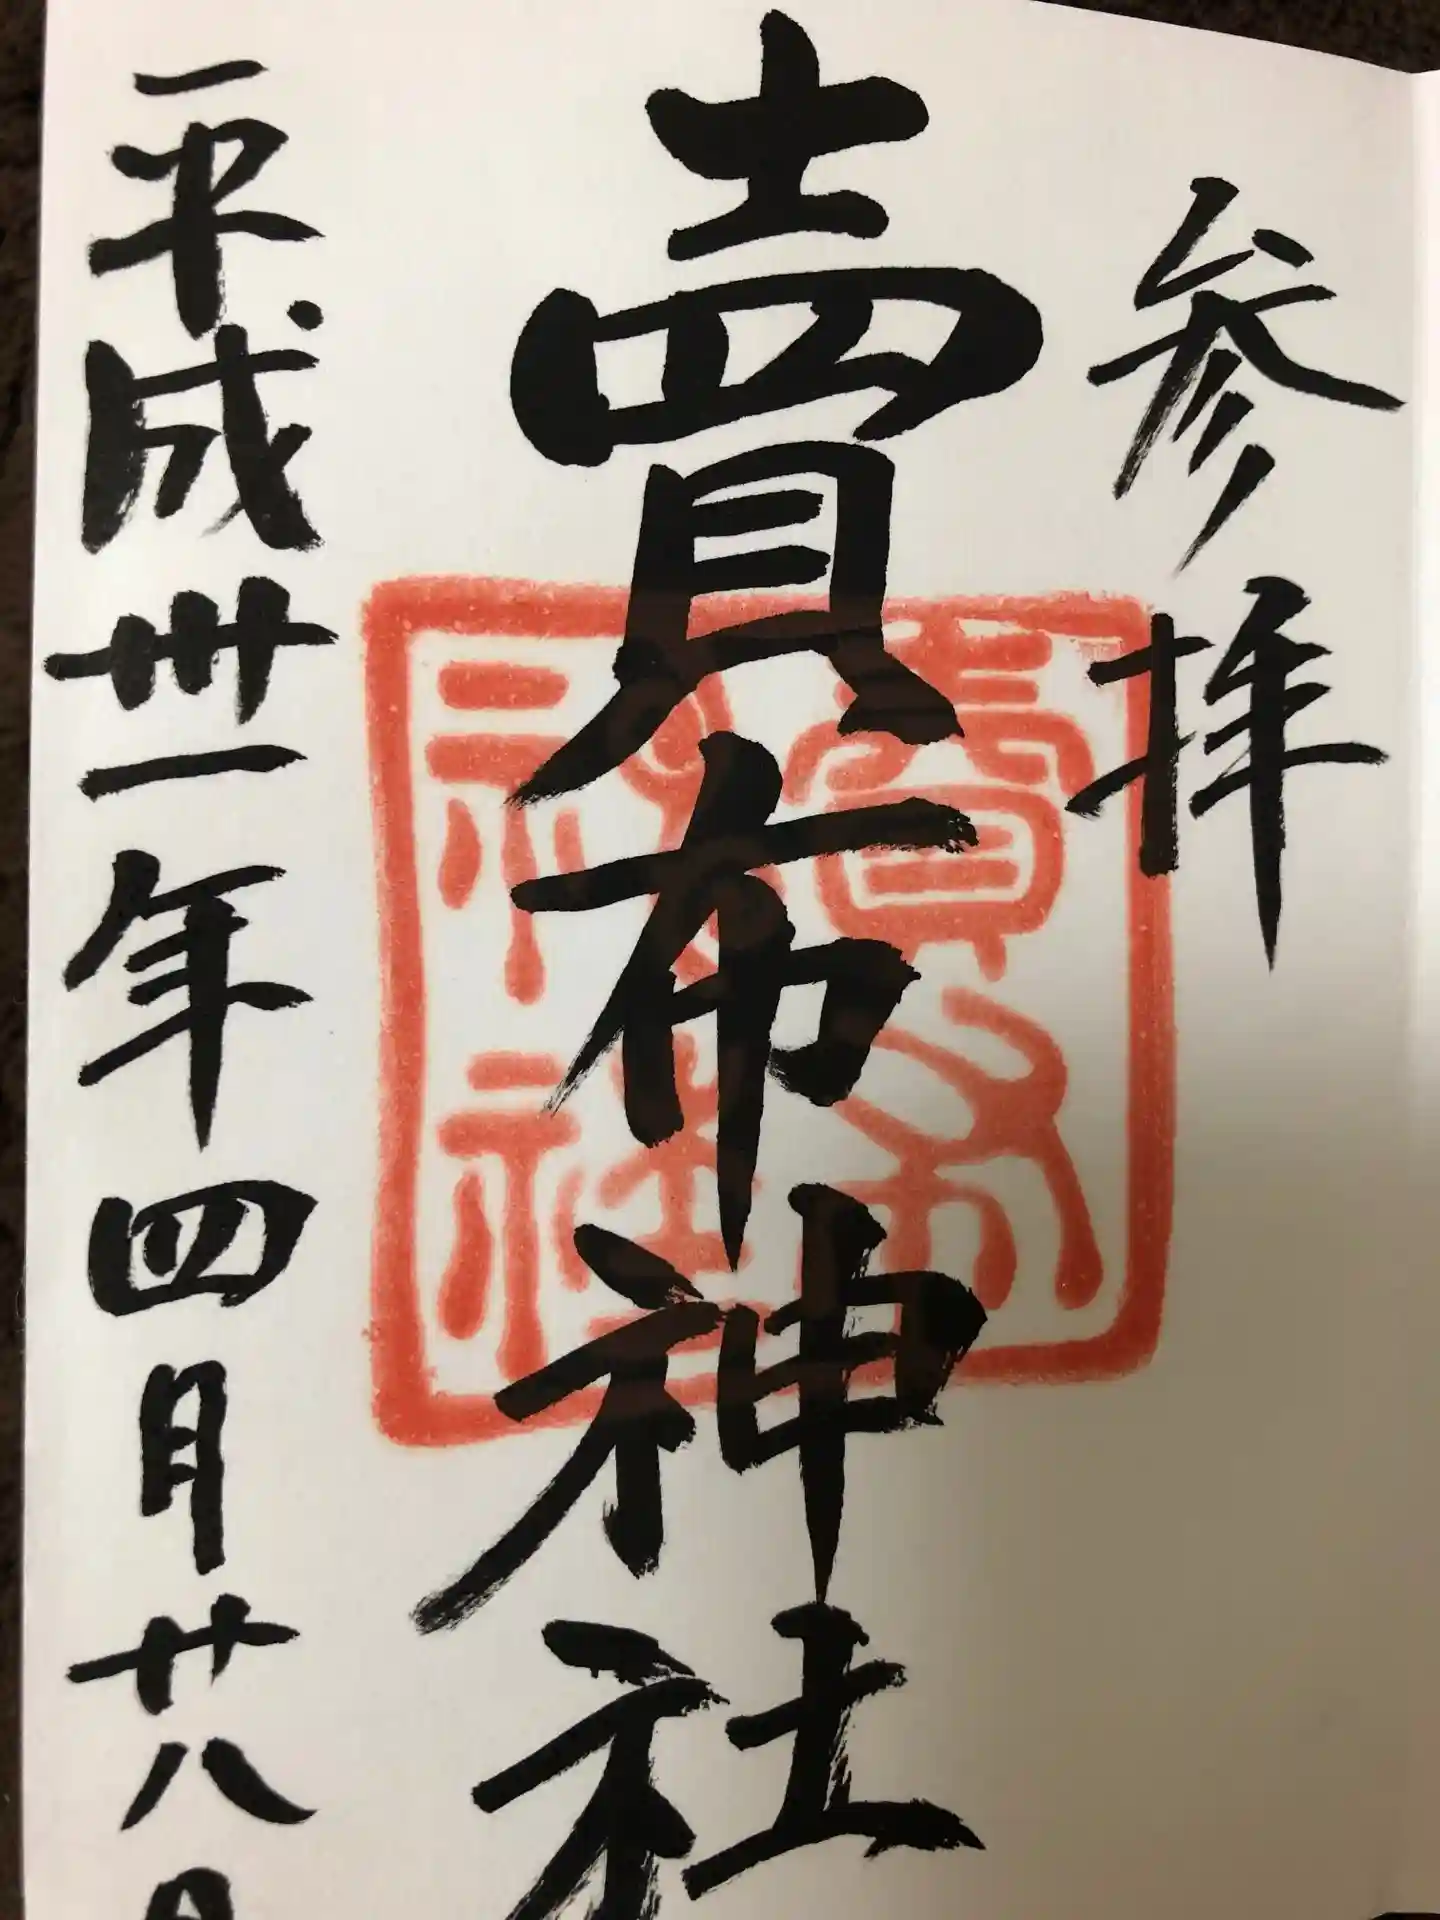 参拝
賣布神社
賣布
神社
平成卅一年四月廿八日